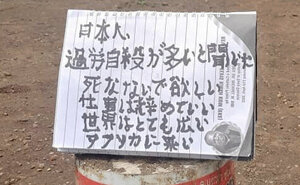 日本人、
過労自殺が多いと聞いた
死なないで欲しい
仕事は辞めていい
世界はとても広い
アフリカに来い